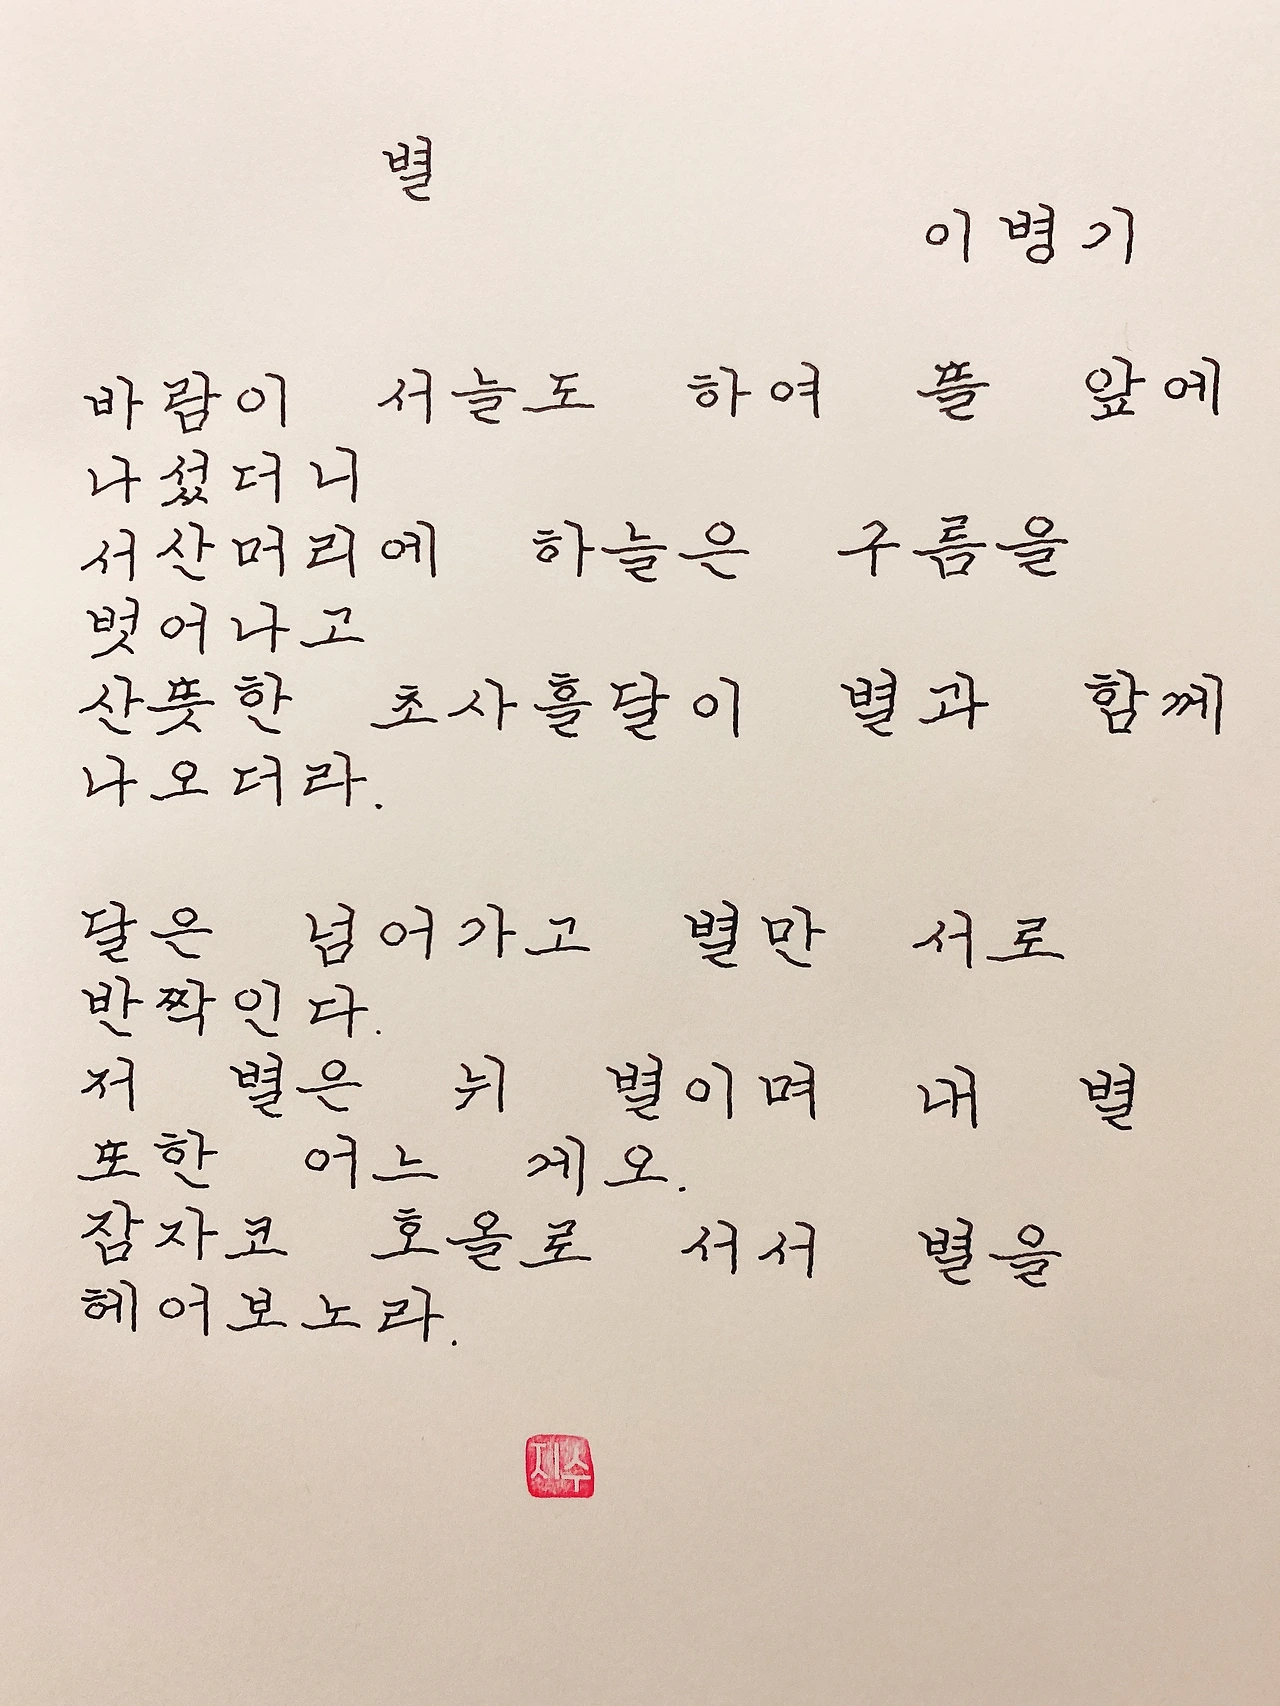 별
이병기
바람이 서늘도 하여 뜰 앞에
나섰더니
서산머리에 하늘은 구름을
벗어나고
산뜻한 초사흘달이 별과 함께
나오더라.
달은 넘어가고 별만 서로
반짝인다.
저 별은 뉘 별이며 내 별
또한 어느 게오.
잠자코 호올로 서서 별을
헤어보노라.
제수